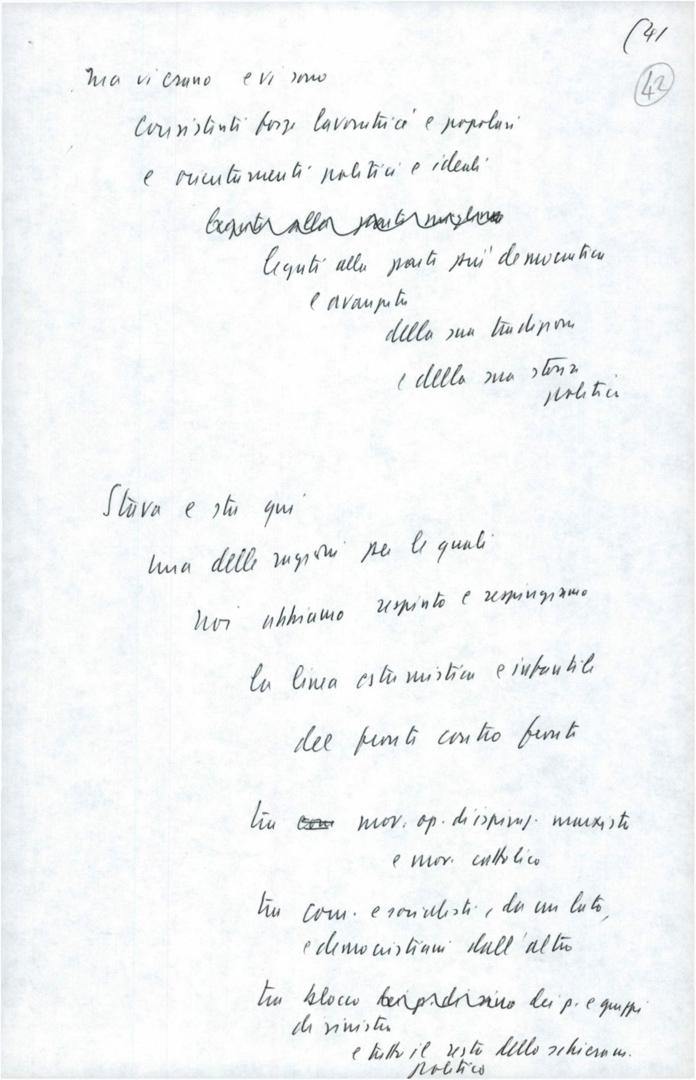 (41
42
ma vi erano e vi sono
consistenti forze lavoratrici e popolari
e orientamenti politici e ideali
legati alla parte
legati alla parte più democratica
e avanzata
della sua tradizione
e della sua storia
politica
Stava e sta qui
una delle ragioni per le quali
noi abbiamo respinto e respingiamo
la linea estremistica e infantile
del fronte contro fronte
tra mov. op. di ispiraz. marxista
e mov. cattolico
tra com. e socialisti, da un lato,
e democristiani dall'altro
tra blocco dei p. e gruppi
di sinistra
e tutto il resto dello schieram.
politico